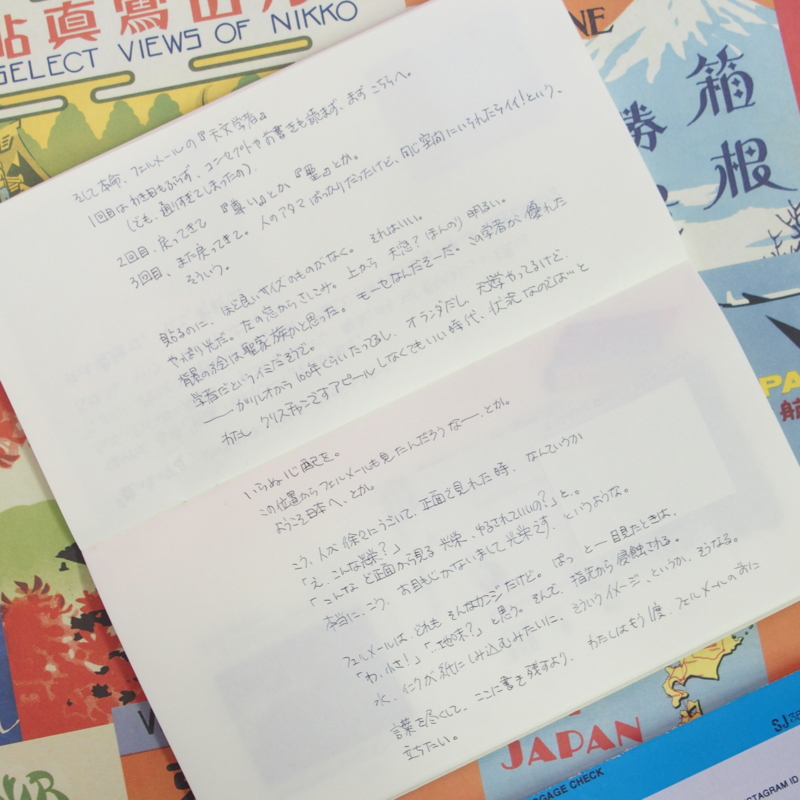 帖真寫
SELECT VIEWS OF NIKKO
NE
箱根
勝
PA
航
そして本命、フェルメールの『天文学者』
1回目はわき目もふらず、コンセプトや前書きも読まず、まずこちらへ。
(でも、通りすぎてしまったの)
2回目、戻ってきて『尊い』とか『聖』とか。
3回目、また戻ってきて。人のアタマばっかりだったけど、同じ空間にいられたらイイ!という、
そういう。
貼るのに、ほど良いサイズのものがなく。それはいい。
やっぱり光だ。左の窓からさしこみ。上から 天窓?ほんのり明るい。
背景の絵は聖家族かと思った。モーセなんだそーだ。この学者が優れた
学者だというイミだそうで。
——ガリレオから100年くらいたってるし、オランダだし、天文学やってるけど、
わたし クリスチャンですアピールしなくてもいい時代、状況なのでは…と
いらぬ心配を。
この位置からフェルメールも見たんだろうなー、とか。
ようこそ日本へ、とか。
こう、人が徐々にうごいて、正面で見れた時、なんていうか
「え、こんな光栄?」
「こんな と正面から見る光栄、ゆるされていいの?」と。
本当に、こう、お目もじかないまして光栄です、というような。
フェルメールは、どれもそんなカンジだけど。ぱっと一目見たときは、
「わ、小さ!」「…地味?」と思う。そんで、指先から侵蝕される。
水、インクが紙にしみ込むみたいに、そういうイメージ、というか、そうなる。
言葉を尽くして、ここに書き残すより、わたしはもう1度、フェルメールの前に
立ちたい。
JAPAN
GGAGE CHECK
SJ
STAGRAM ID
UR